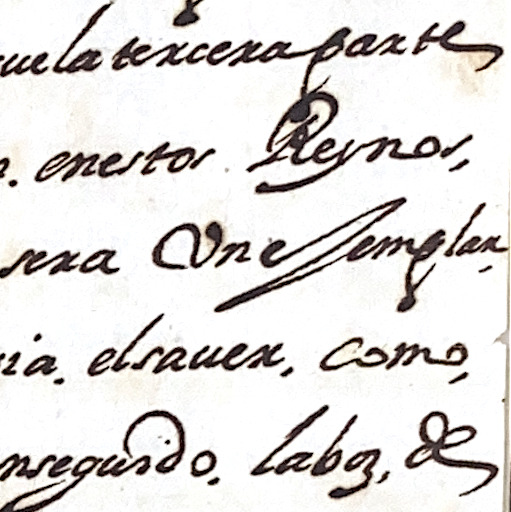 uela tercera parte
n. enestos Reynos,
sera Vn essemplar,
ia. elsauer, como,
nseguido. laboz, de